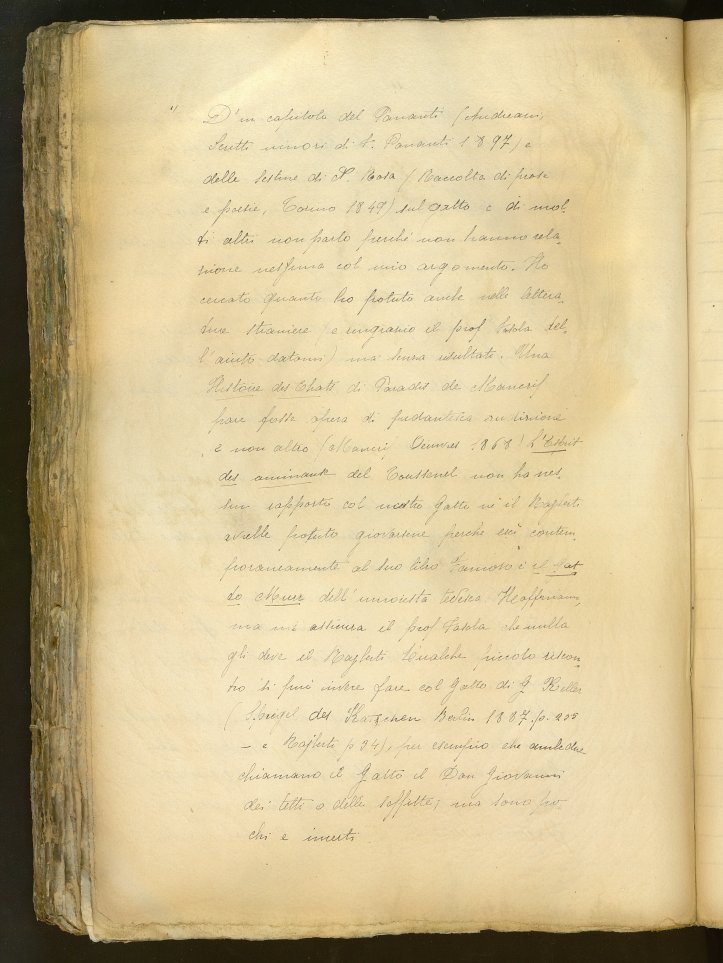 " D'un capitolo del Pananti (Andreani,
Scritti minori di F. Pananti 1897) e
delle Sestine di P. Rosa (Raccolta di prose
e poesie, Torino 1849) sul Gatto e di mol,
ti altri non parlo perché non hanno rela,
zione nessuna col mio argomento. Ho
cercato quanto ho potuto anche nelle lettera,
ture straniere (e ringrazio il prof Fasola del,
l'aiuto datomi) ma senza risultati. Una
Histoire des Chats di Paradis de Moncrif
pare fosse opera di pedantesca erudizione
e non altro (Moncrif Oeuvres 1868! L'Esprit
des animaux del Toussenel non ha nes,
sun rapporto col nostro Gatto né il Rajberti
avrebbe potuto giovarsene perché escì contem,
poraneamente al suo libro. Famoso è il Gat
to Murr dell'umorista tedesco Hoffmann,
ma mi assicura il prof Fasola che nulla
gli deve il Rajberti. Qualche piccolo riscon,
tro si può invece fare col Gatto di G. Keller
(Spiegel das Kätzchen Berlin 1887 p.
- e Rajberti p 94), per esempio che ambedue
chiamano il Gatto il Don Giovanni
dei tetti o delle soffitte, ma sono po,
chi e incerti